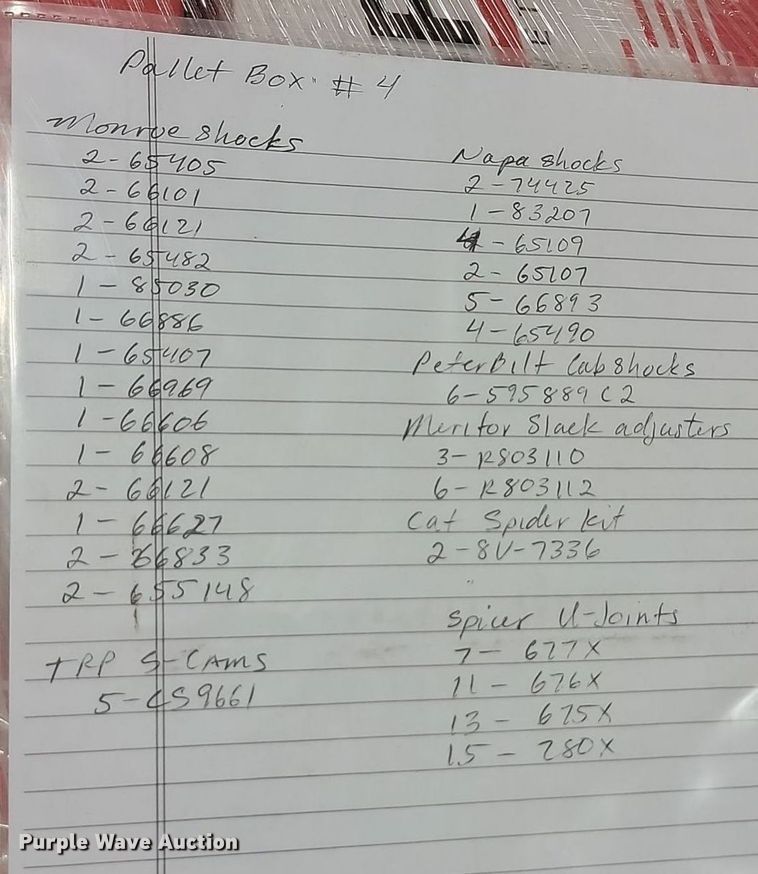 Pallet Box # 4
Monroe shocks
2-65405
2-66101
2-66121
2-65482
1-85030
1-66886
1-65407
1-66969
1-66606
1-66608
2-66121
1-66627
2-66833
2-655148
TRP S-CAMS
5-CS9661
Napa shocks
2-74425
1-83207
4-65109
2-65107
5-66893
4-65490
PeterBilt Cab shocks
6-595889C2
Meritor Slack adjusters
3-R803110
6-R803112
Cat Spider kit
2-8V-7336
Spicer U-Joints
7-677X
11-676X
13-675X
15-280X
Purple Wave Auction